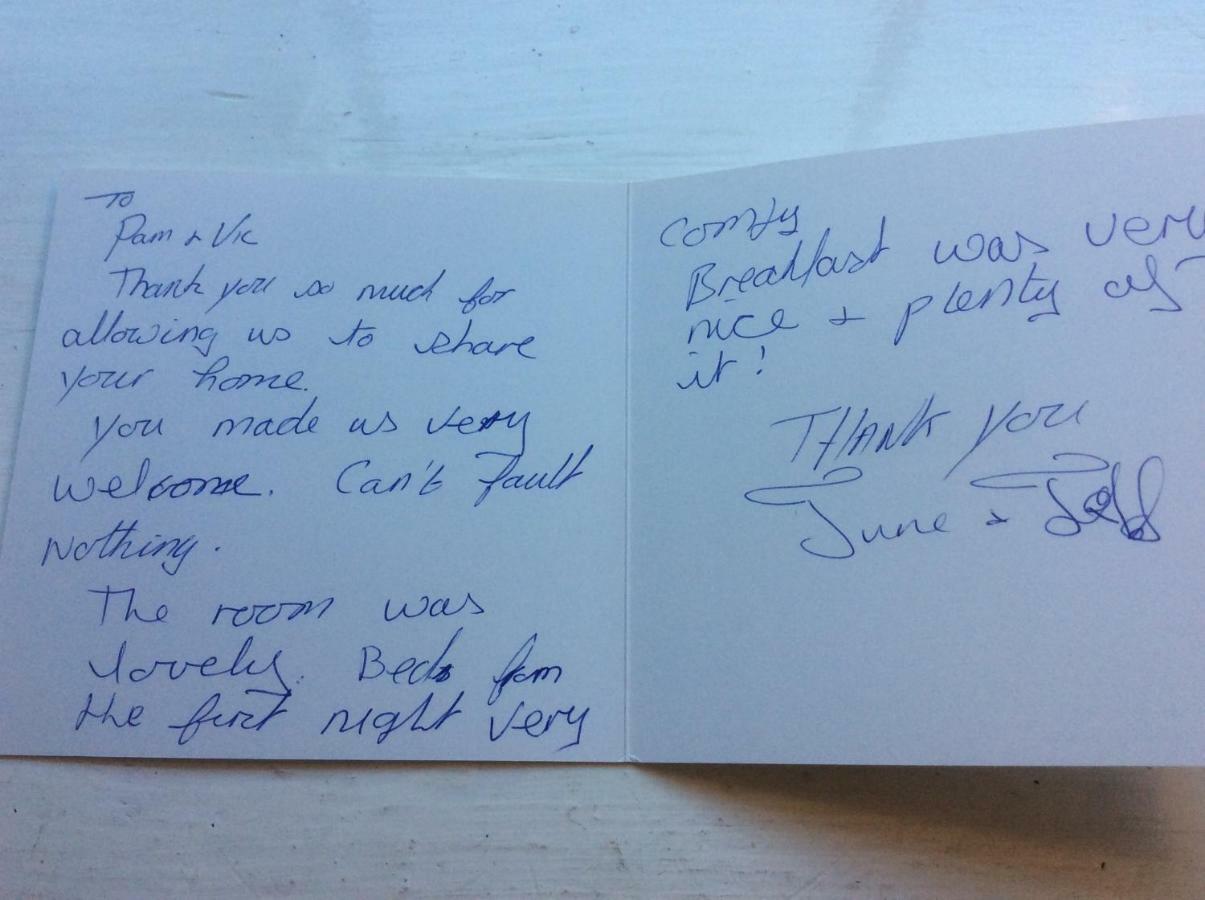 To
Pam & Vic
Thank you so much for
allowing us to share
your home.
You made us very
welcome. Can't fault
nothing.
The room was
lovely. Beds from
the first night very
comfy
Breakfast was very
nice & plenty of
it!
THANK you
June & Jeff